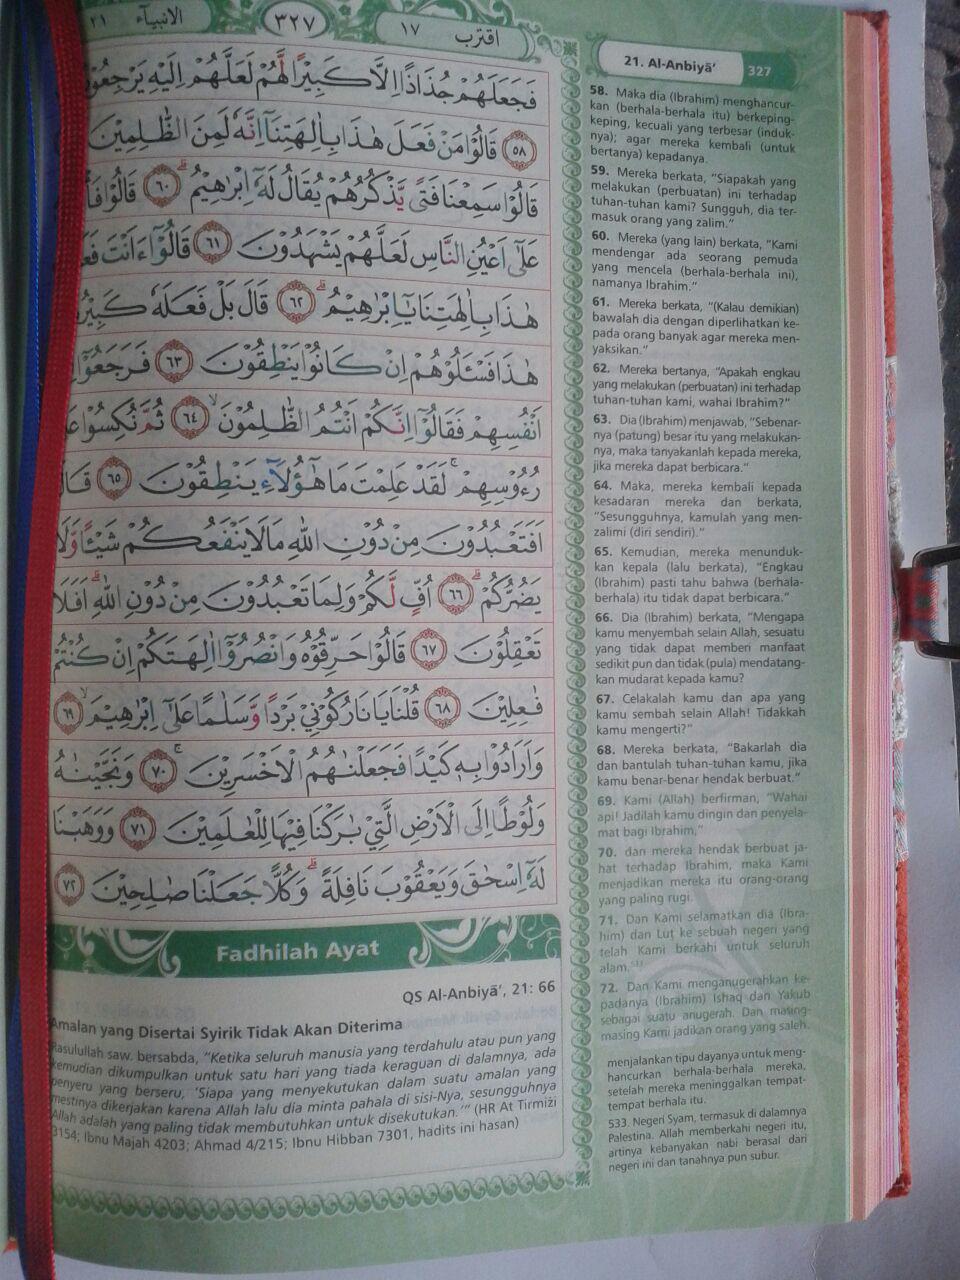 ٢١ الانبيآء
٣٢٧
اقترب ١٧
فَجَعَلَهُمْ جُذَاذًا اِلَّا كَبِيْرًا لَّهُمْ لَعَلَّهُمْ اِلَيْهِ يَرْجِعُوْنَ
٥٨ قَالُوْا مَنْ فَعَلَ هٰذَا بِاٰلِهَتِنَآ اِنَّهٗ لَمِنَ الظّٰلِمِيْنَ
قَالُوْا سَمِعْنَا فَتًى يَّذْكُرُهُمْ يُقَالُ لَهٗٓ اِبْرٰهِيْمُ ۗ ٦٠ قَالُوْا
عَلٰٓى اَعْيُنِ النَّاسِ لَعَلَّهُمْ يَشْهَدُوْنَ ٦١ قَالُوْٓا ءَاَنْتَ
هٰذَا بِاٰلِهَتِنَا يٰٓاِبْرٰهِيْمُ ۗ ٦٢ قَالَ بَلْ فَعَلَهٗ
هٰذَا فَسْـَٔلُوْهُمْ اِنْ كَانُوْا يَنْطِقُوْنَ ٦٣ فَرَجَعُوْٓا
اَنْفُسِهِمْ فَقَالُوْٓا اِنَّكُمْ اَنْتُمُ الظّٰلِمُوْنَ ۙ ٦٤ ثُمَّ نُكِسُوْا
رُءُوْسِهِمْ ۚ لَقَدْ عَلِمْتَ مَا هٰٓؤُلَاۤءِ يَنْطِقُوْنَ ٦٥ قَالَ
اَفَتَعْبُدُوْنَ مِنْ دُوْنِ اللّٰهِ مَا لَا يَنْفَعُكُمْ شَيْـًٔا وَّلَا
يَضُرُّكُمْ ۗ ٦٦ اُفٍّ لَّكُمْ وَلِمَا تَعْبُدُوْنَ مِنْ دُوْنِ اللّٰهِ ۗ اَفَلَا
تَعْقِلُوْنَ ٦٧ قَالُوْا حَرِّقُوْهُ وَانْصُرُوْٓا اٰلِهَتَكُمْ اِنْ كُنْتُمْ
فٰعِلِيْنَ ٦٨ قُلْنَا يٰنَارُ كُوْنِيْ بَرْدًا وَّسَلٰمًا عَلٰٓى اِبْرٰهِيْمَ ۙ ٦٩
وَاَرَادُوْا بِهٖ كَيْدًا فَجَعَلْنٰهُمُ الْاَخْسَرِيْنَ ۚ ٧٠ وَنَجَّيْنٰهُ
وَلُوْطًا اِلَى الْاَرْضِ الَّتِيْ بٰرَكْنَا فِيْهَا لِلْعٰلَمِيْنَ ٧١ وَوَهَبْنَا
لَهٗٓ اِسْحٰقَ وَيَعْقُوْبَ نَافِلَةً ۗ وَكُلًّا جَعَلْنَا صٰلِحِيْنَ ٧٢
Fadhilah Ayat
QS Al-Anbiyā', 21: 66
Amalan yang Disertai Syirik Tidak Akan Diterima
Rasulullah saw. bersabda, "Ketika seluruh manusia yang terdahulu atau pun yang
kemudian dikumpulkan untuk satu hari yang tiada keraguan di dalamnya, ada
penyeru yang berseru, 'Siapa yang menyekutukan dalam suatu amalan yang
mestinya dikerjakan karena Allah lalu dia minta pahala di sisi-Nya, sesungguhnya
Allah adalah yang paling tidak membutuhkan untuk disekutukan.'" (HR At Tirmizi
3154; Ibnu Majah 4203; Ahmad 4/215; Ibnu Hibban 7301, hadits ini hasan)
21. Al-Anbiyā' 327
58. Maka dia (Ibrahim) menghancur-
kan (berhala-berhala itu) berkeping-
keping, kecuali yang terbesar (induk-
nya); agar mereka kembali (untuk
bertanya) kepadanya.
59. Mereka berkata, "Siapakah yang
melakukan (perbuatan) ini terhadap
tuhan-tuhan kami? Sungguh, dia ter-
masuk orang yang zalim."
60. Mereka (yang lain) berkata, "Kami
mendengar ada seorang pemuda
yang mencela (berhala-berhala ini),
namanya Ibrahim."
61. Mereka berkata, "(Kalau demikian)
bawalah dia dengan diperlihatkan ke-
pada orang banyak agar mereka men-
yaksikan."
62. Mereka bertanya, "Apakah engkau
yang melakukan (perbuatan) ini terhadap
tuhan-tuhan kami, wahai Ibrahim?"
63. Dia (Ibrahim) menjawab, "Sebenar-
nya (patung) besar itu yang melakukan-
nya, maka tanyakanlah kepada mereka,
jika mereka dapat berbicara."
64. Maka, mereka kembali kepada
kesadaran mereka dan berkata,
"Sesungguhnya, kamulah yang men-
zalimi (diri sendiri)."
65. Kemudian, mereka menunduk-
kan kepala (lalu berkata), "Engkau
(Ibrahim) pasti tahu bahwa (berhala-
berhala) itu tidak dapat berbicara."
66. Dia (Ibrahim) berkata, "Mengapa
kamu menyembah selain Allah, sesuatu
yang tidak dapat memberi manfaat
sedikit pun dan tidak (pula) mendatang-
kan mudarat kepada kamu?
67. Celakalah kamu dan apa yang
kamu sembah selain Allah! Tidakkah
kamu mengerti?"
68. Mereka berkata, "Bakarlah dia
dan bantulah tuhan-tuhan kamu, jika
kamu benar-benar hendak berbuat."
69. Kami (Allah) berfirman, "Wahai
api! Jadilah kamu dingin dan penyela-
mat bagi Ibrahim,"
70. dan mereka hendak berbuat ja-
hat terhadap Ibrahim, maka Kami
menjadikan mereka itu orang-orang
yang paling rugi.
71. Dan Kami selamatkan dia (Ibra-
him) dan Lut ke sebuah negeri yang
telah Kami berkahi untuk seluruh
alam.⁵³³
72. Dan Kami menganugerahkan ke-
padanya (Ibrahim) Ishaq dan Yakub
sebagai suatu anugerah. Dan masing-
masing Kami jadikan orang yang saleh.
menjalankan tipu dayanya untuk meng-
hancurkan berhala-berhala mereka,
setelah mereka meninggalkan tempat-
tempat berhala itu.
533. Negeri Syam, termasuk di dalamnya
Palestina. Allah memberkahi negeri itu,
artinya kebanyakan nabi berasal dari
negeri ini dan tanahnya pun subur.